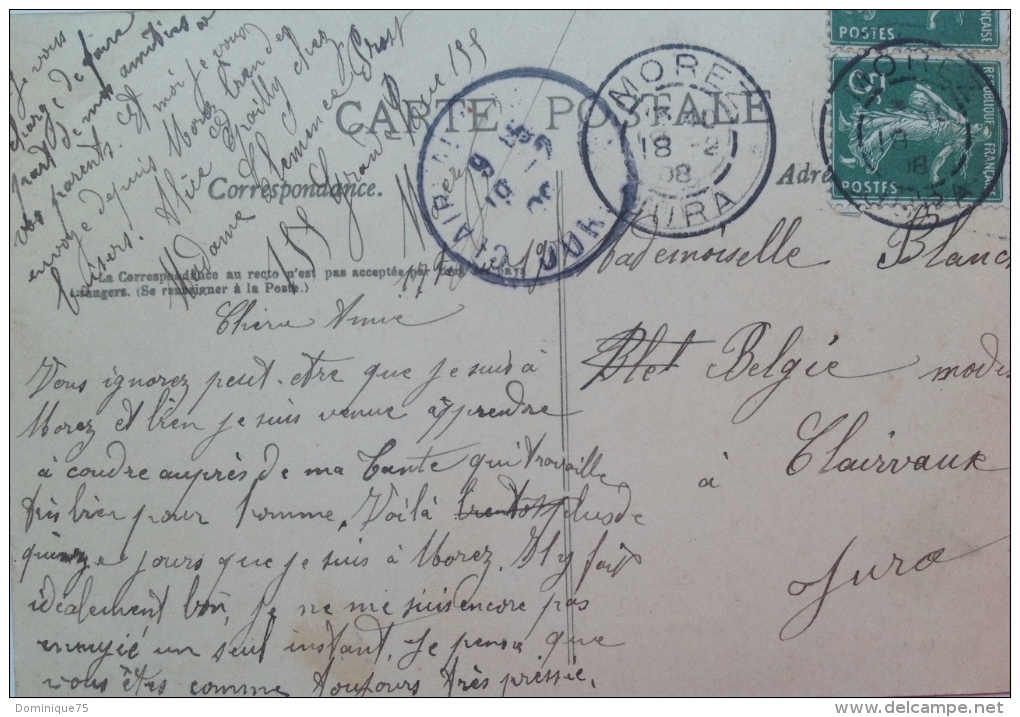 CARTE POSTALE
Correspondance.
La Correspondance au recto n'est pas acceptée par tous les pays
étrangers. (Se renseigner à la Poste.)
Chère Amie
Vous ignorez peut-être que je suis à
Morez et bien je suis venue apprendre
à coudre auprès de ma tante qui travaille
très bien pour homme. Voilà plus de
quinze jours que je suis à Morez. Il y fait
idéalement bon, je ne me suis encore pas
ennuyié un seul instant. Je pense que
vous êtes comme toujours très pressée.
Je vous
charge de faire
part de mes amitiés à
vos parents. Et moi je vous
envoye depuis Morez grand
baisers. Alice chez
Madame Clémence Prost
155 Grande Rue 155
Mademoiselle Blanch
Belgie modis
à Clairvaux
Jura
MOREZ
18
08
JURA
CLAIRVAUX
JURA
POSTES
REPUBLIQUE FRANÇAISE
POSTES
Dominique75